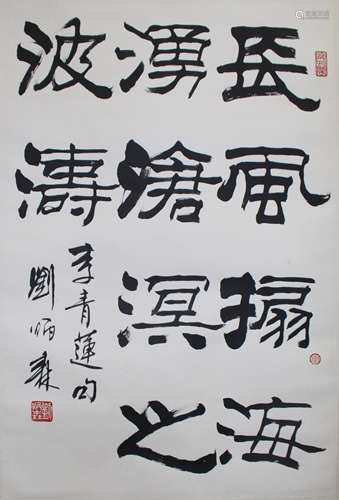 長風搧海
湧滄溟之
波濤
李青蓮句
劉炳森